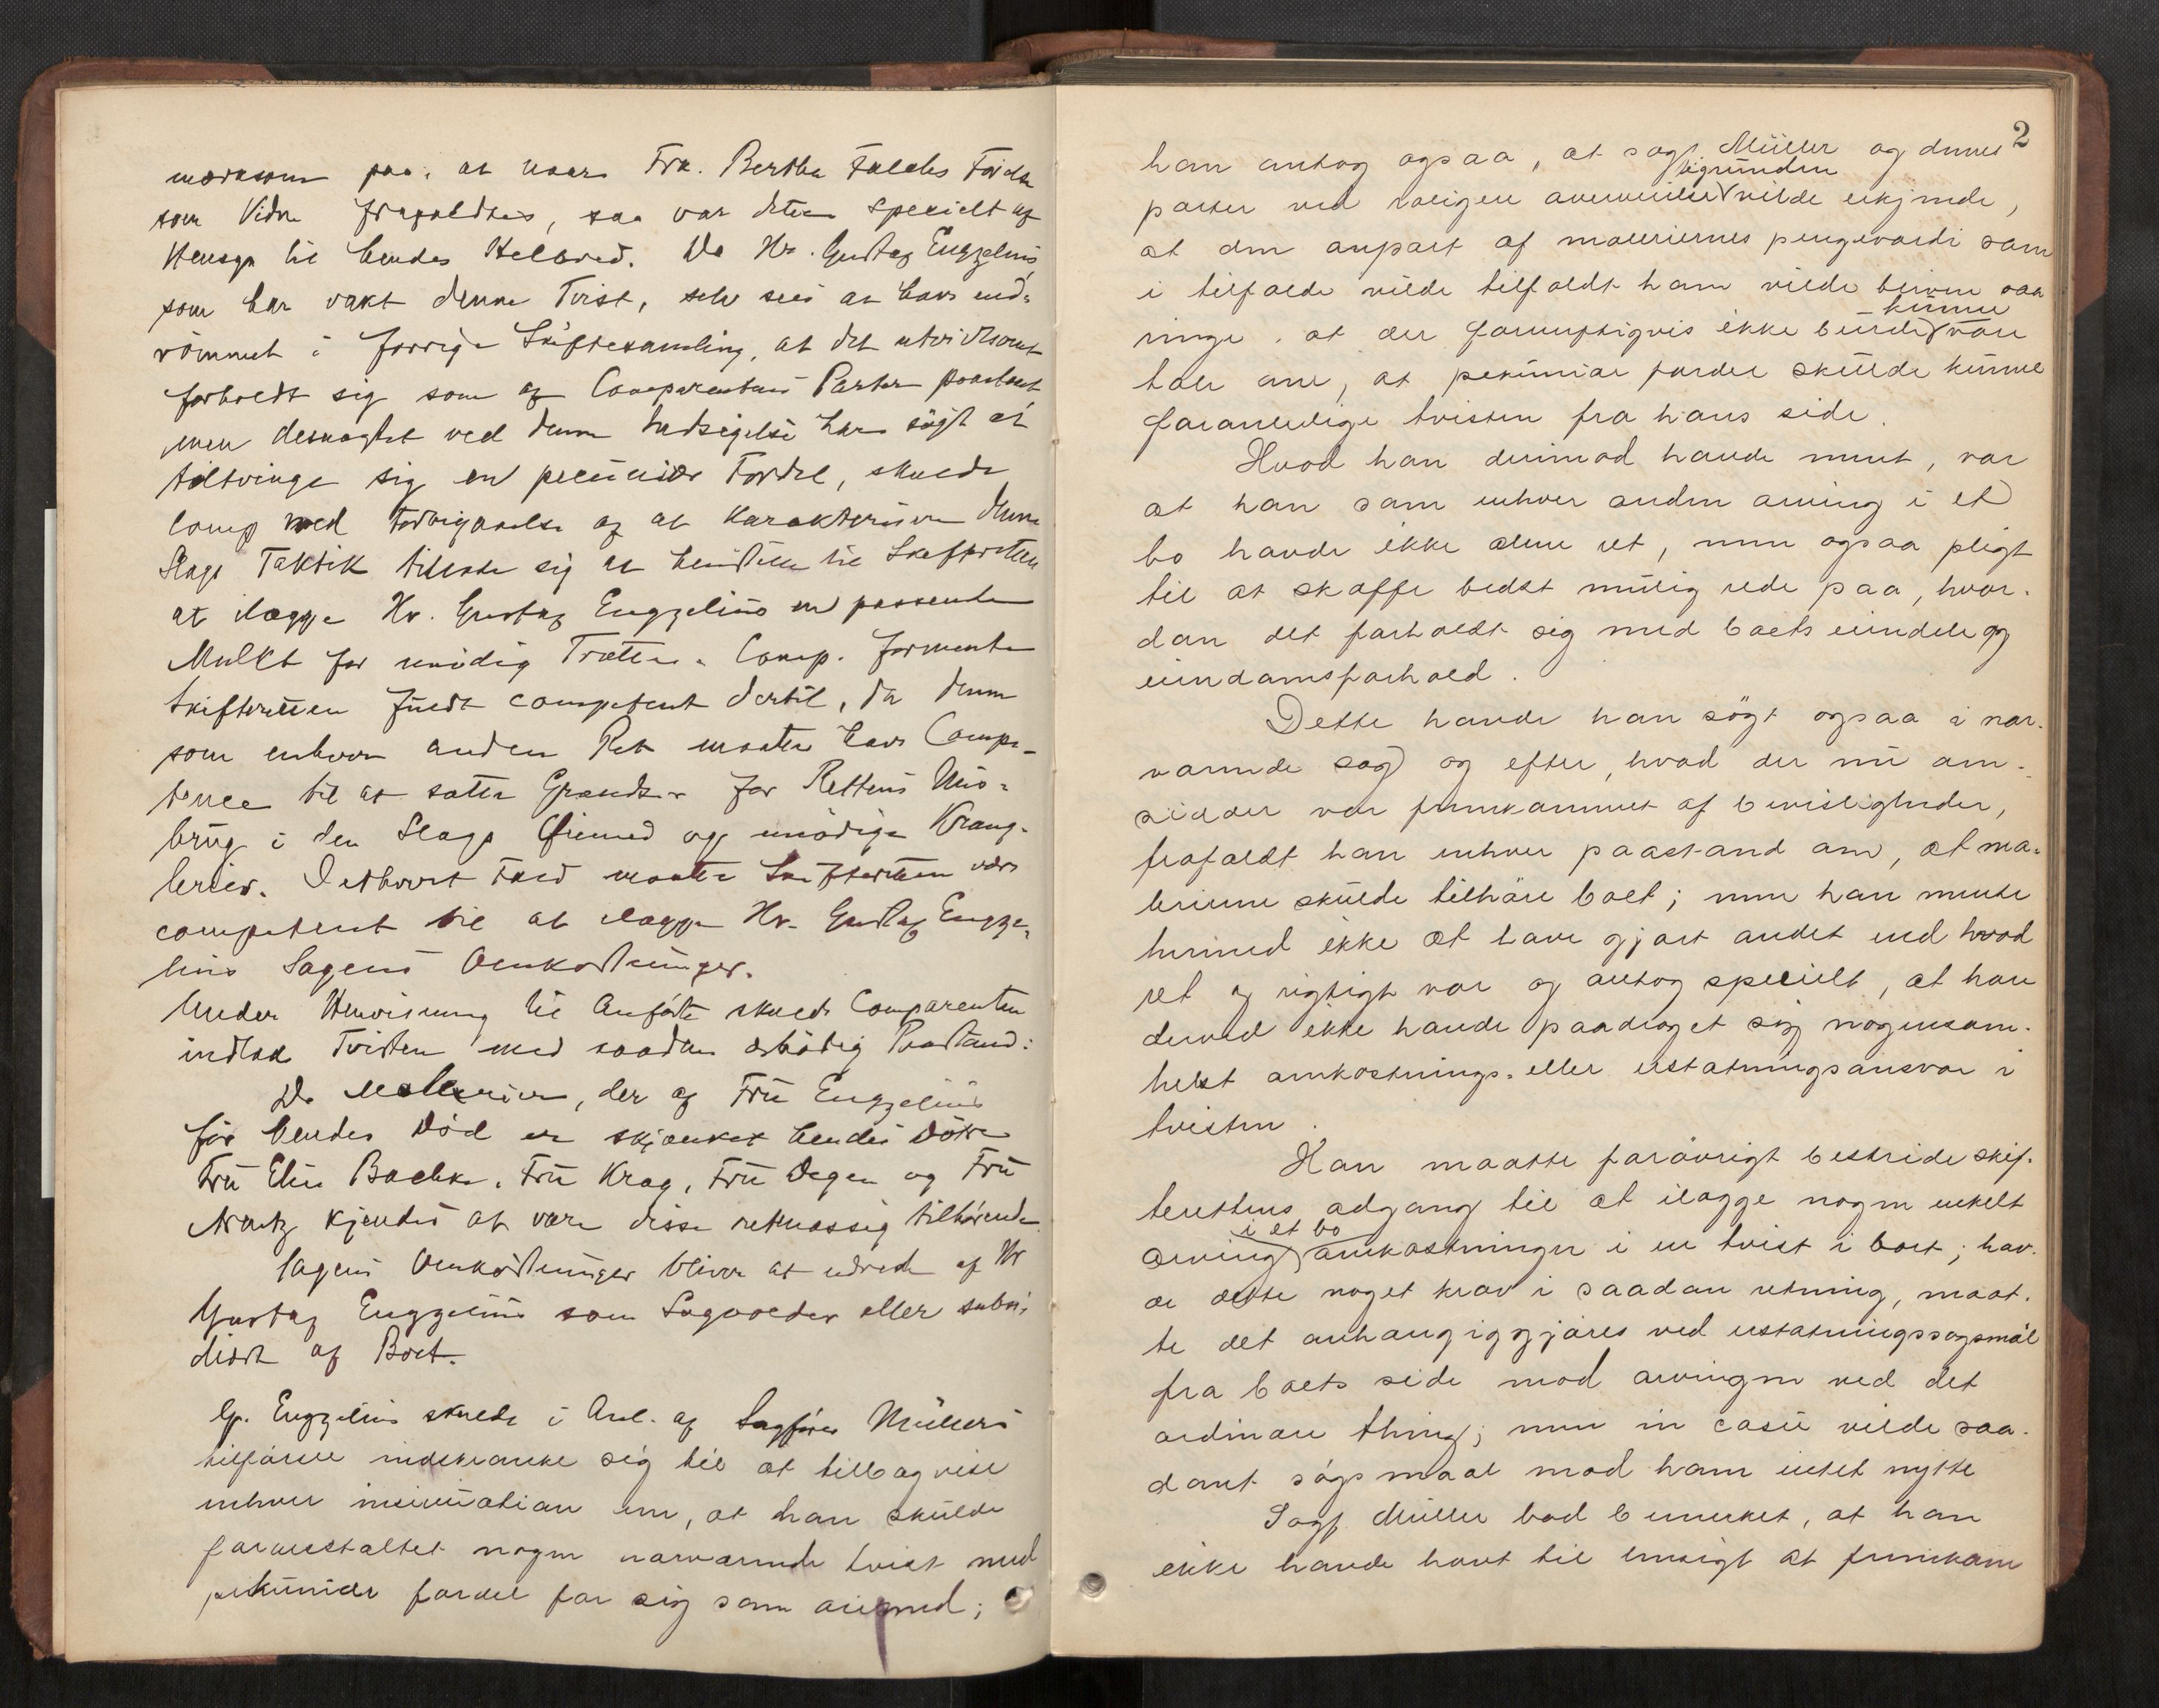 mærksom paa, at naar Frk. Bertha Falchs Førelse
som Vidne frafaldtes, saa var dette specielt af
Hensyn til hendes Helbred. Da Hr. Gustaf Enggelius,
som har vakt denne Tvist, selv sees at have ind-
rømmet i forrige Skiftesamling, at det utvivlsomt
forholdt sig som af Comparentens Parter paastaaet,
men desuagtet ved denne Indsigelse har søgt at
tiltvinge sig en pecuniær Fordel, skulde
Comp med Forbigaaelse af at karakterisere denne
Slags Taktik tillade sig at henstille til Skifteretten
at ilægge Hr. Gustaf Enggelius en passende
Mulkt for unödig Trætte. Comp. formente
Skifteretten fuldt competent dertil, da denne
som enhver anden Ret maatte have Compe-
tence til at sætte Grændser for Rettens Mis-
brug i den Slags Øiemed og unödige Krang-
lerier. I ethvert Fald maatte Skifteretten være
competent til at ilægge Hr. Gustaf Engge-
lius Sagens Omkostninger.
Under Henvisning til Anførte skulde Comparenten
indlade Tvisten med saadan ærbödig Paastand:
De Malerier, der af Frü Enggelius
før hendes Død er skjænket hendes Døtre
Frü Elise Backer, Frü Krag, Frü Degen og Frü
kjendes at være disse retmæssig tilhørende.
Sagens Omkostninger bliver at udrede af Hr
Gustaf Enggelius som Sagvolder eller subsi-
diært af Boet.
G. Enggelius skulde i Anl. af Sagfører Müllers
tilførsel indskrænke sig til at tilbagevise
enhver insinüation om, at han skülde
foranstaltet nogen nærværende tvist med
pekuniær fordel for sig som øiemed;
2
han antog ogsaa, at sagf. Müller og dennes
tigründen
parter ved roligere overveielse vilde erkjende,
at den anpart af maleriernes pengeværdi som
i tilfælde vilde tilfaldt ham vilde bleven saa
künne
ringe, at der fornuftigvis ikke bürde være
tale om, at pekuniær fordel skülde künne
foranledige tvisten fra hans side.
Hvad han derimod havde ment, var
at han som enhver anden arving i et
bo havde ikke alene ret, men ogsaa pligt
til at skaffe bedst mülig rede paa, hvor-
dan det forholdt sig med boets eiendele og
eiendomsforhold.
Dette havde han søgt ogsaa i nær-
værende sag og efter, hvad der nü om-
sider var fremkommet af bevisligheder,
frafaldt han enhver paastand om, at ma-
lerierne skülde tilhöre boet; men han mente
hermed ikke at have gjort andet end hvad
ret og rigtigt var og antog specielt, at han
derved ikke havde paadraget sig nogensom-
helst omkostnings- eller erstatningsansvar i
tvisten.
Han maatte forövrigt bestride skif-
terettens adgang til at ilægge nogen enkelt
i et bo
arving omkostninger i en tvist i boet; hav-
de dette noget krav i saadan retning, maat-
te det anhængiggjöres ved erstatningssøgsmål
fra boets side mod arvingen ved det
ordinære thing; men in casü vilde saa-
dant sögsmaal mod ham intet nytte
Sagf. Müller bad bemerket, at han
ikke havde havt til hensigt at fremkom